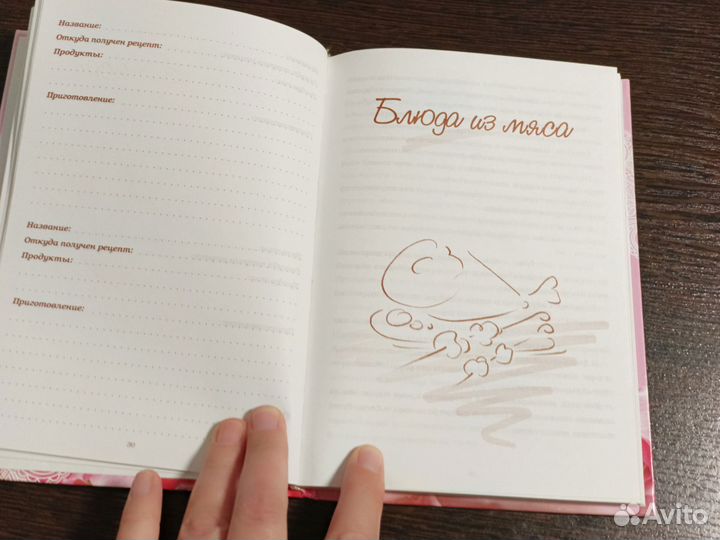 Название:
Откуда получен рецепт:
Продукты:
Приготовление:
Название:
Откуда получен рецепт:
Продукты:
Приготовление:
30
Блюда из мяса
Avito